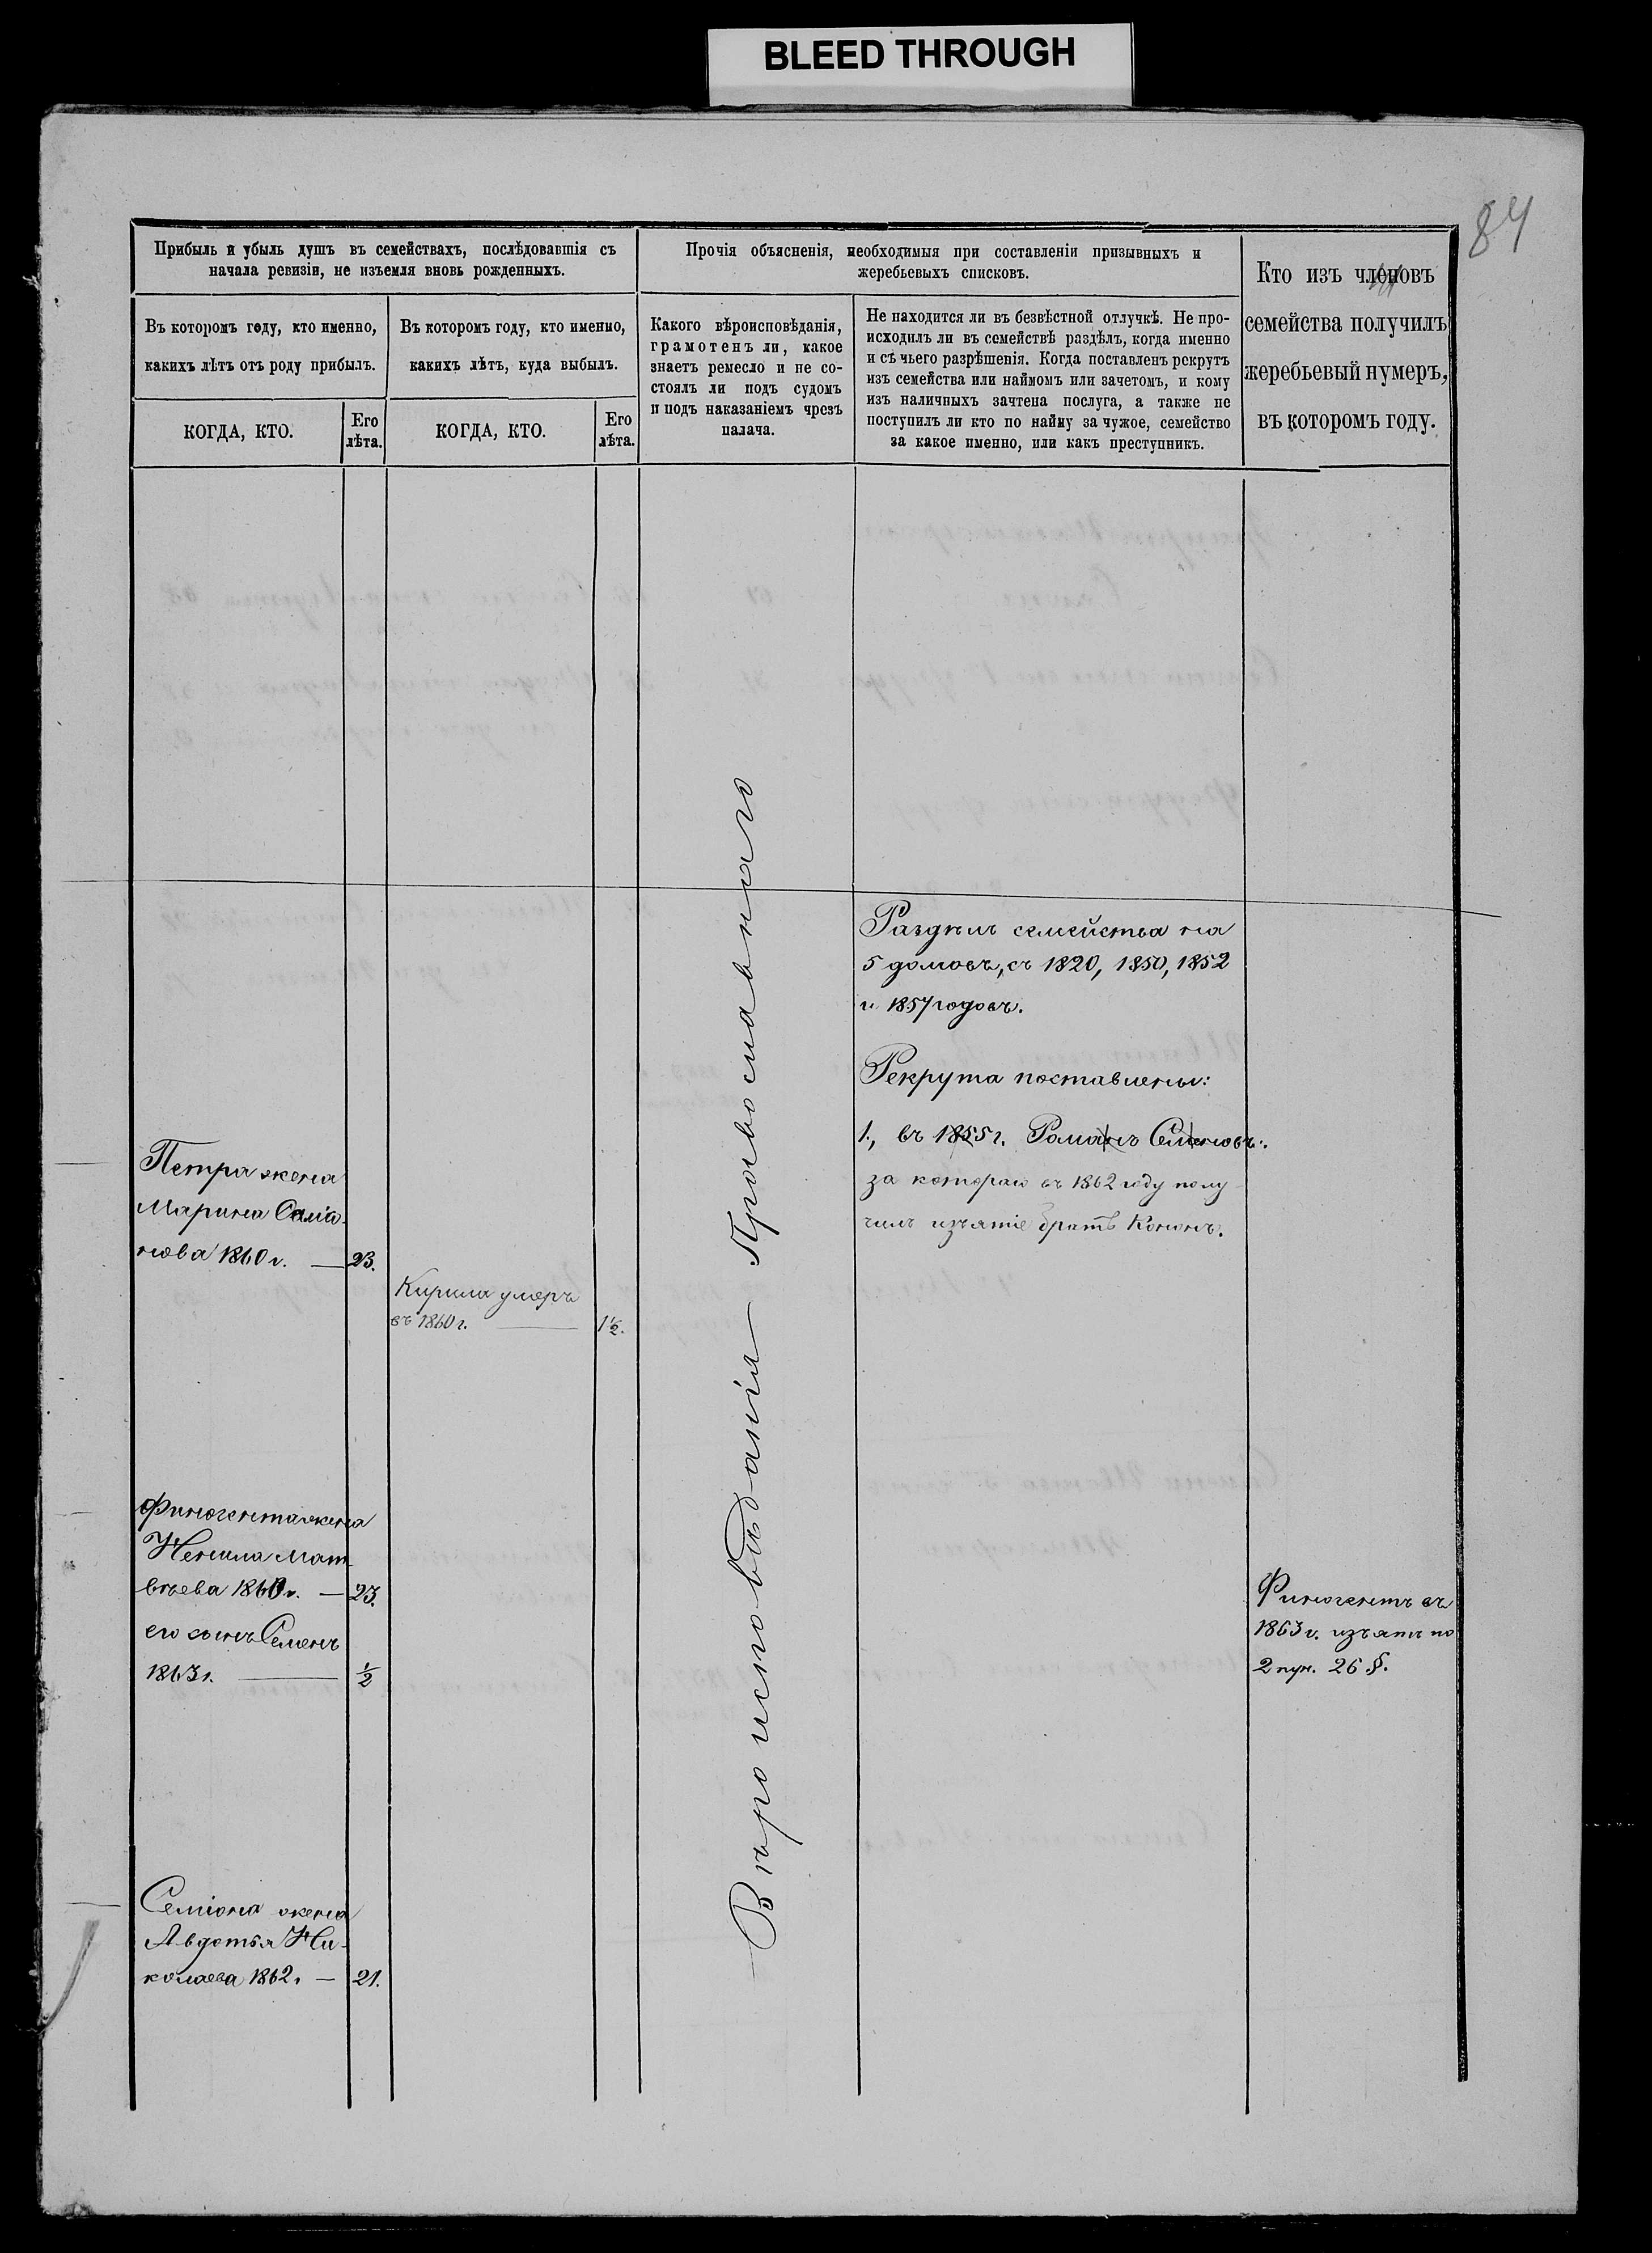 BLEED THROUGH
84
Прибыль и убыль душъ въ семействахъ, послѣдовавшія съ
начала ревизіи, не изъемля вновь рожденныхъ.
Прочія объясненія, необходимыя при составленіи призывныхъ и
жеребьевыхъ списковъ.
Кто изъ членовъ
семейства получилъ
жеребьевый нумеръ,
въ которомъ году.
Въ которомъ году, кто именно,
какихъ лѣтъ отъ роду прибылъ.
Въ которомъ году, кто именно,
какихъ лѣтъ, куда выбылъ.
Какого вѣроисповѣданія,
грамотенъ ли, какое
знаетъ ремесло и не со-
стоялъ ли подъ судомъ
и подъ наказаніемъ чрезъ
палача.
Не находится ли въ безвѣстной отлучкѣ. Не про-
исходилъ ли въ семействѣ раздѣлъ, когда именно
и съ чьего разрѣшенія. Когда поставленъ рекрутъ
изъ семейства или наймомъ или зачетомъ, и кому
изъ наличныхъ зачтена послуга, а также не
поступилъ ли кто по найму за чужое, семейство
за какое именно, или какъ преступникъ.
КОГДА, КТО.
Его
лѣта.
КОГДА, КТО.
Его
лѣта.
Вѣроисповѣданія Православнаго
Раздѣлъ семейства на
5 домовъ, съ 1820, 1850, 1852
и 1857 годовъ.
Рекрута поставлены:
1., въ 1855 г. Романъ Семеновъ:
за котораго въ 1862 году полу
чилъ изъятіе братъ Кононъ.
Петра жена
Марина
нова 1860 г. — 23.
Кирила умеръ
въ 1860 г. — 1½.
Финогента жена
Ненила Мат
вѣева 1860 г. — 23.
его сынъ Семенъ
1863 г. — ½
Финогентъ въ
1863 г. изъятъ по
2 пун. 26 §.
Семіона жена
Авдотья Ни-
колаева 1862. — 21.